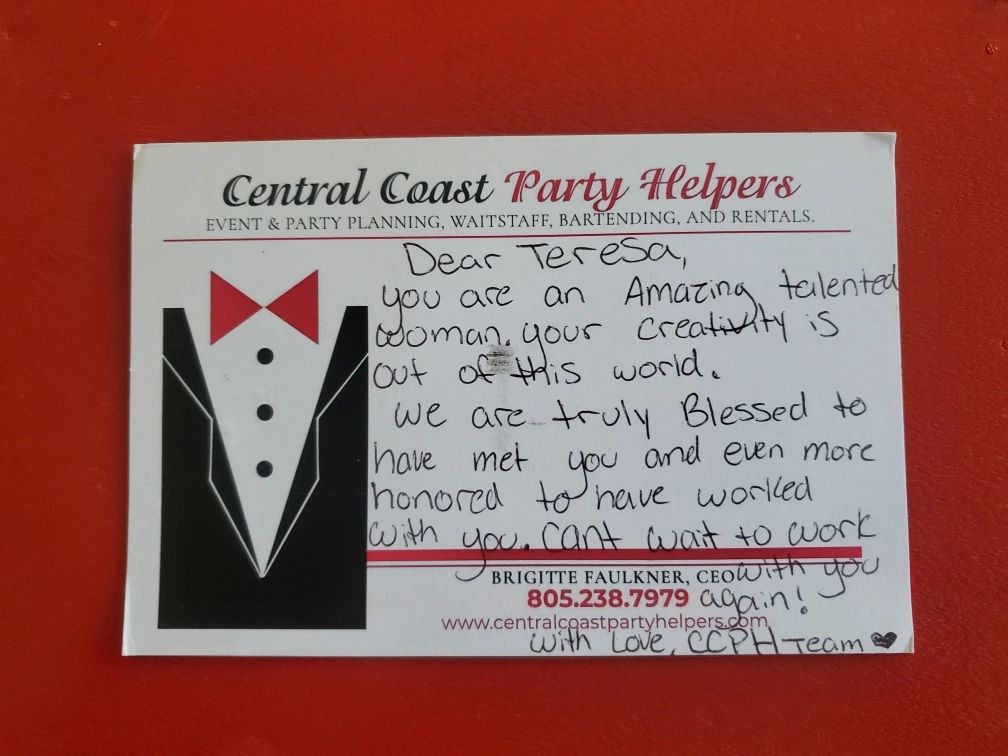 Central Coast Party Helpers
EVENT & PARTY PLANNING, WAITSTAFF, BARTENDING, AND RENTALS.
Dear Teresa,
you are an Amazing talented
woman. your creativity is
out of this world.
we are truly Blessed to
have met you and even more
honored to have worked
with you. Cant wait to work
BRIGITTE FAULKNER, CEO with you
805.238.7979 again!
www.centralcoastpartyhelpers.com
with Love, CCPH Team ♥